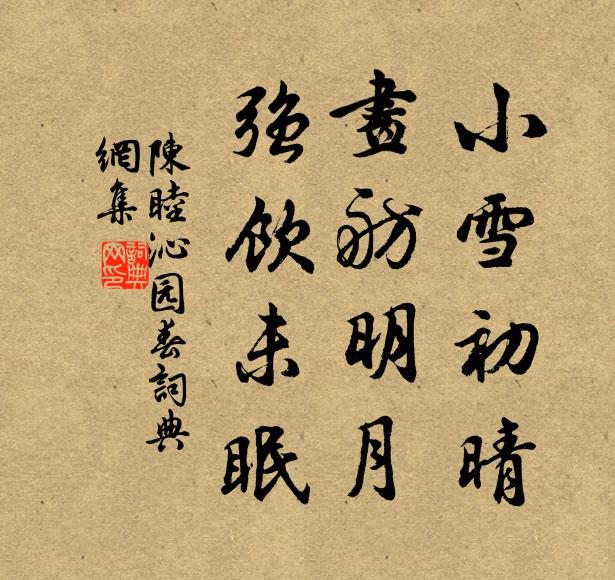 小雪初晴
畫舫明月
強飲未眠
陳睦沁园春詞典
網集
詞典
网印